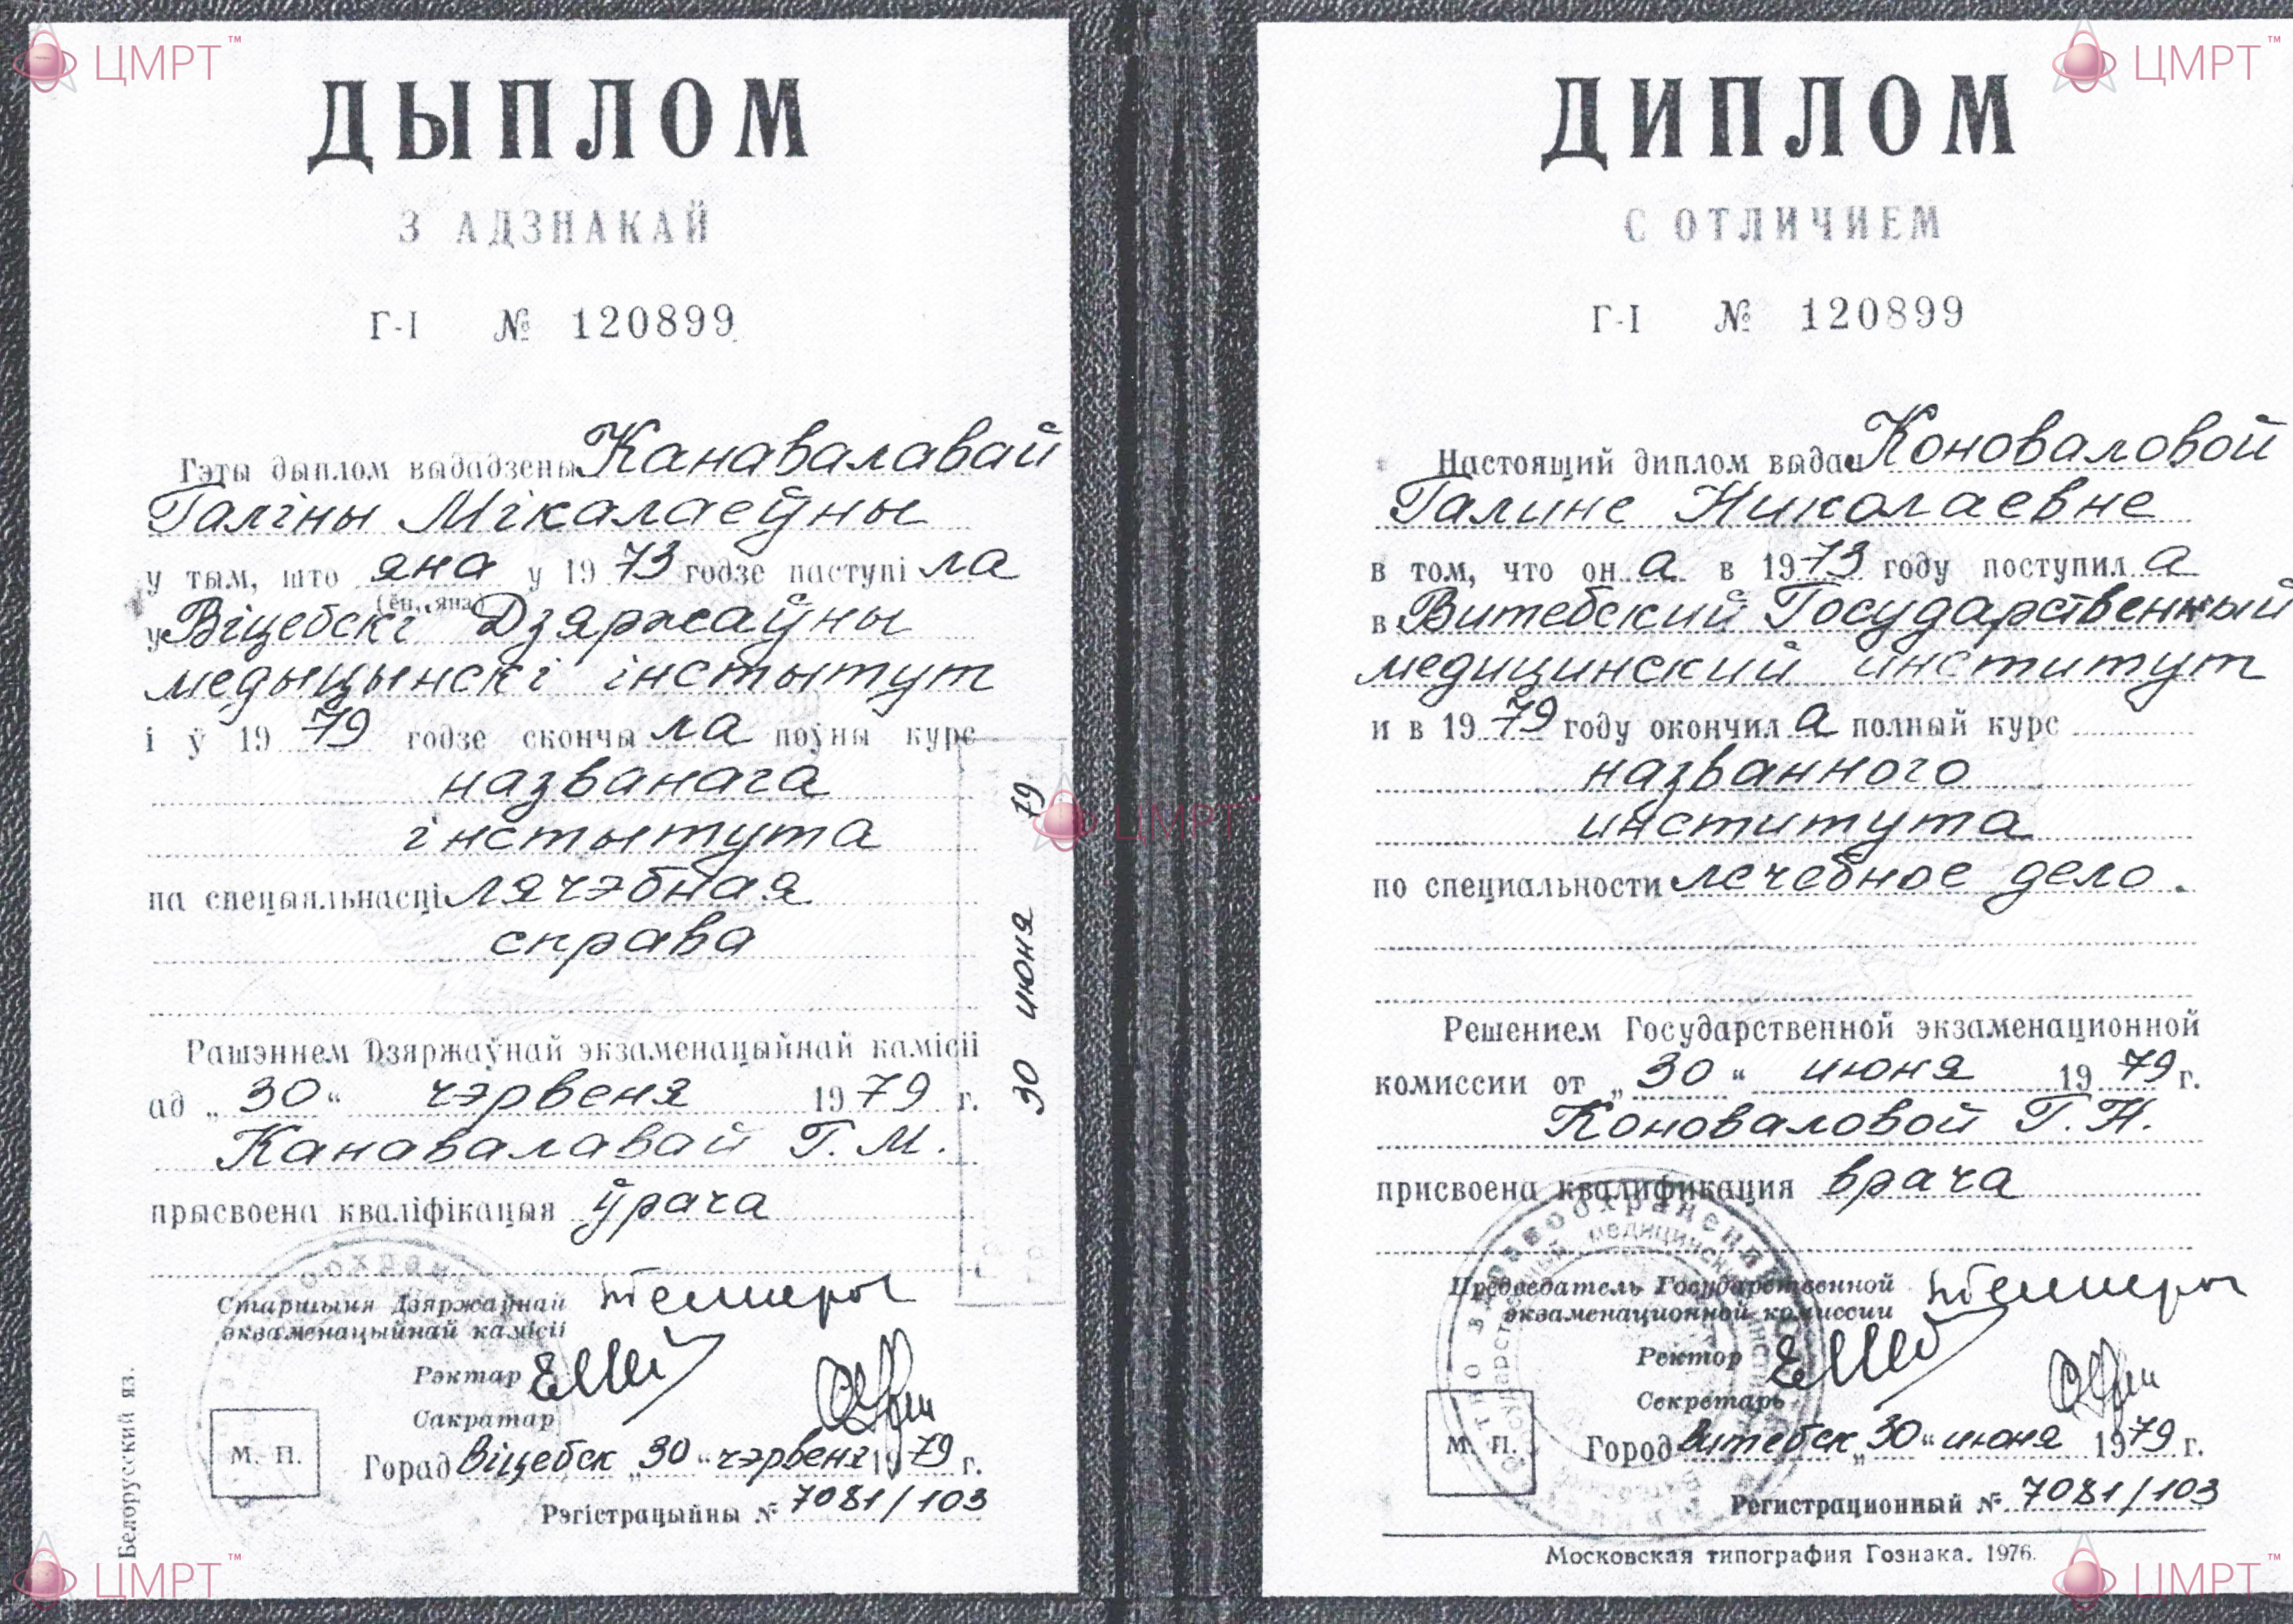 ЦМРТ™
ДЫПЛОМ
З АДЗНАКАЙ
Г-I № 120899
Гэты дыплом выдадзены Канавалавай
Галіны Мікалаеўны
у тым, што яна у 1973 годзе паступіла
(ён, яна)
у Віцебскі Дзяржаўны
медыцынскі інстытут
і ў 1979 годзе скончыла поўны курс
названага
інстытута
па спецыяльнасці лячэбная
справа
Рашэннем Дзяржаўнай экзаменацыйнай камісіі
ад „30“ чэрвеня 1979 г.
Канавалавай Г. М.
прысвоена кваліфікацыя ўрача
Старшыня Дзяржаўнай
экзаменацыйнай камісіі
Рэктар
Сакратар
М. П.
Горад Віцебск „30“ чэрвеня 1979 г.
Рэгістрацыйны № 7081/103
Белорусский яз.
30 июня 79
ЦМРТ™
ЦМРТ
ЦМРТ™
ДИПЛОМ
С ОТЛИЧИЕМ
Г-I № 120899
Настоящий диплом выдан Коноваловой
Галине Николаевне
в том, что она в 1973 году поступила
в Витебский Государственный
медицинский институт
и в 1979 году окончила полный курс
названного
института
по специальности лечебное дело.
Решением Государственной экзаменационной
комиссии от „30“ июня 1979 г.
Коноваловой Г. Н.
присвоена квалификация врача
Председатель Государственной
экзаменационной комиссии
Ректор
Секретарь
М. П.
Город Витебск „30“ июня 1979 г.
Регистрационный № 7081/103
Московская типография Гознака. 1976.
ЦМРТ™